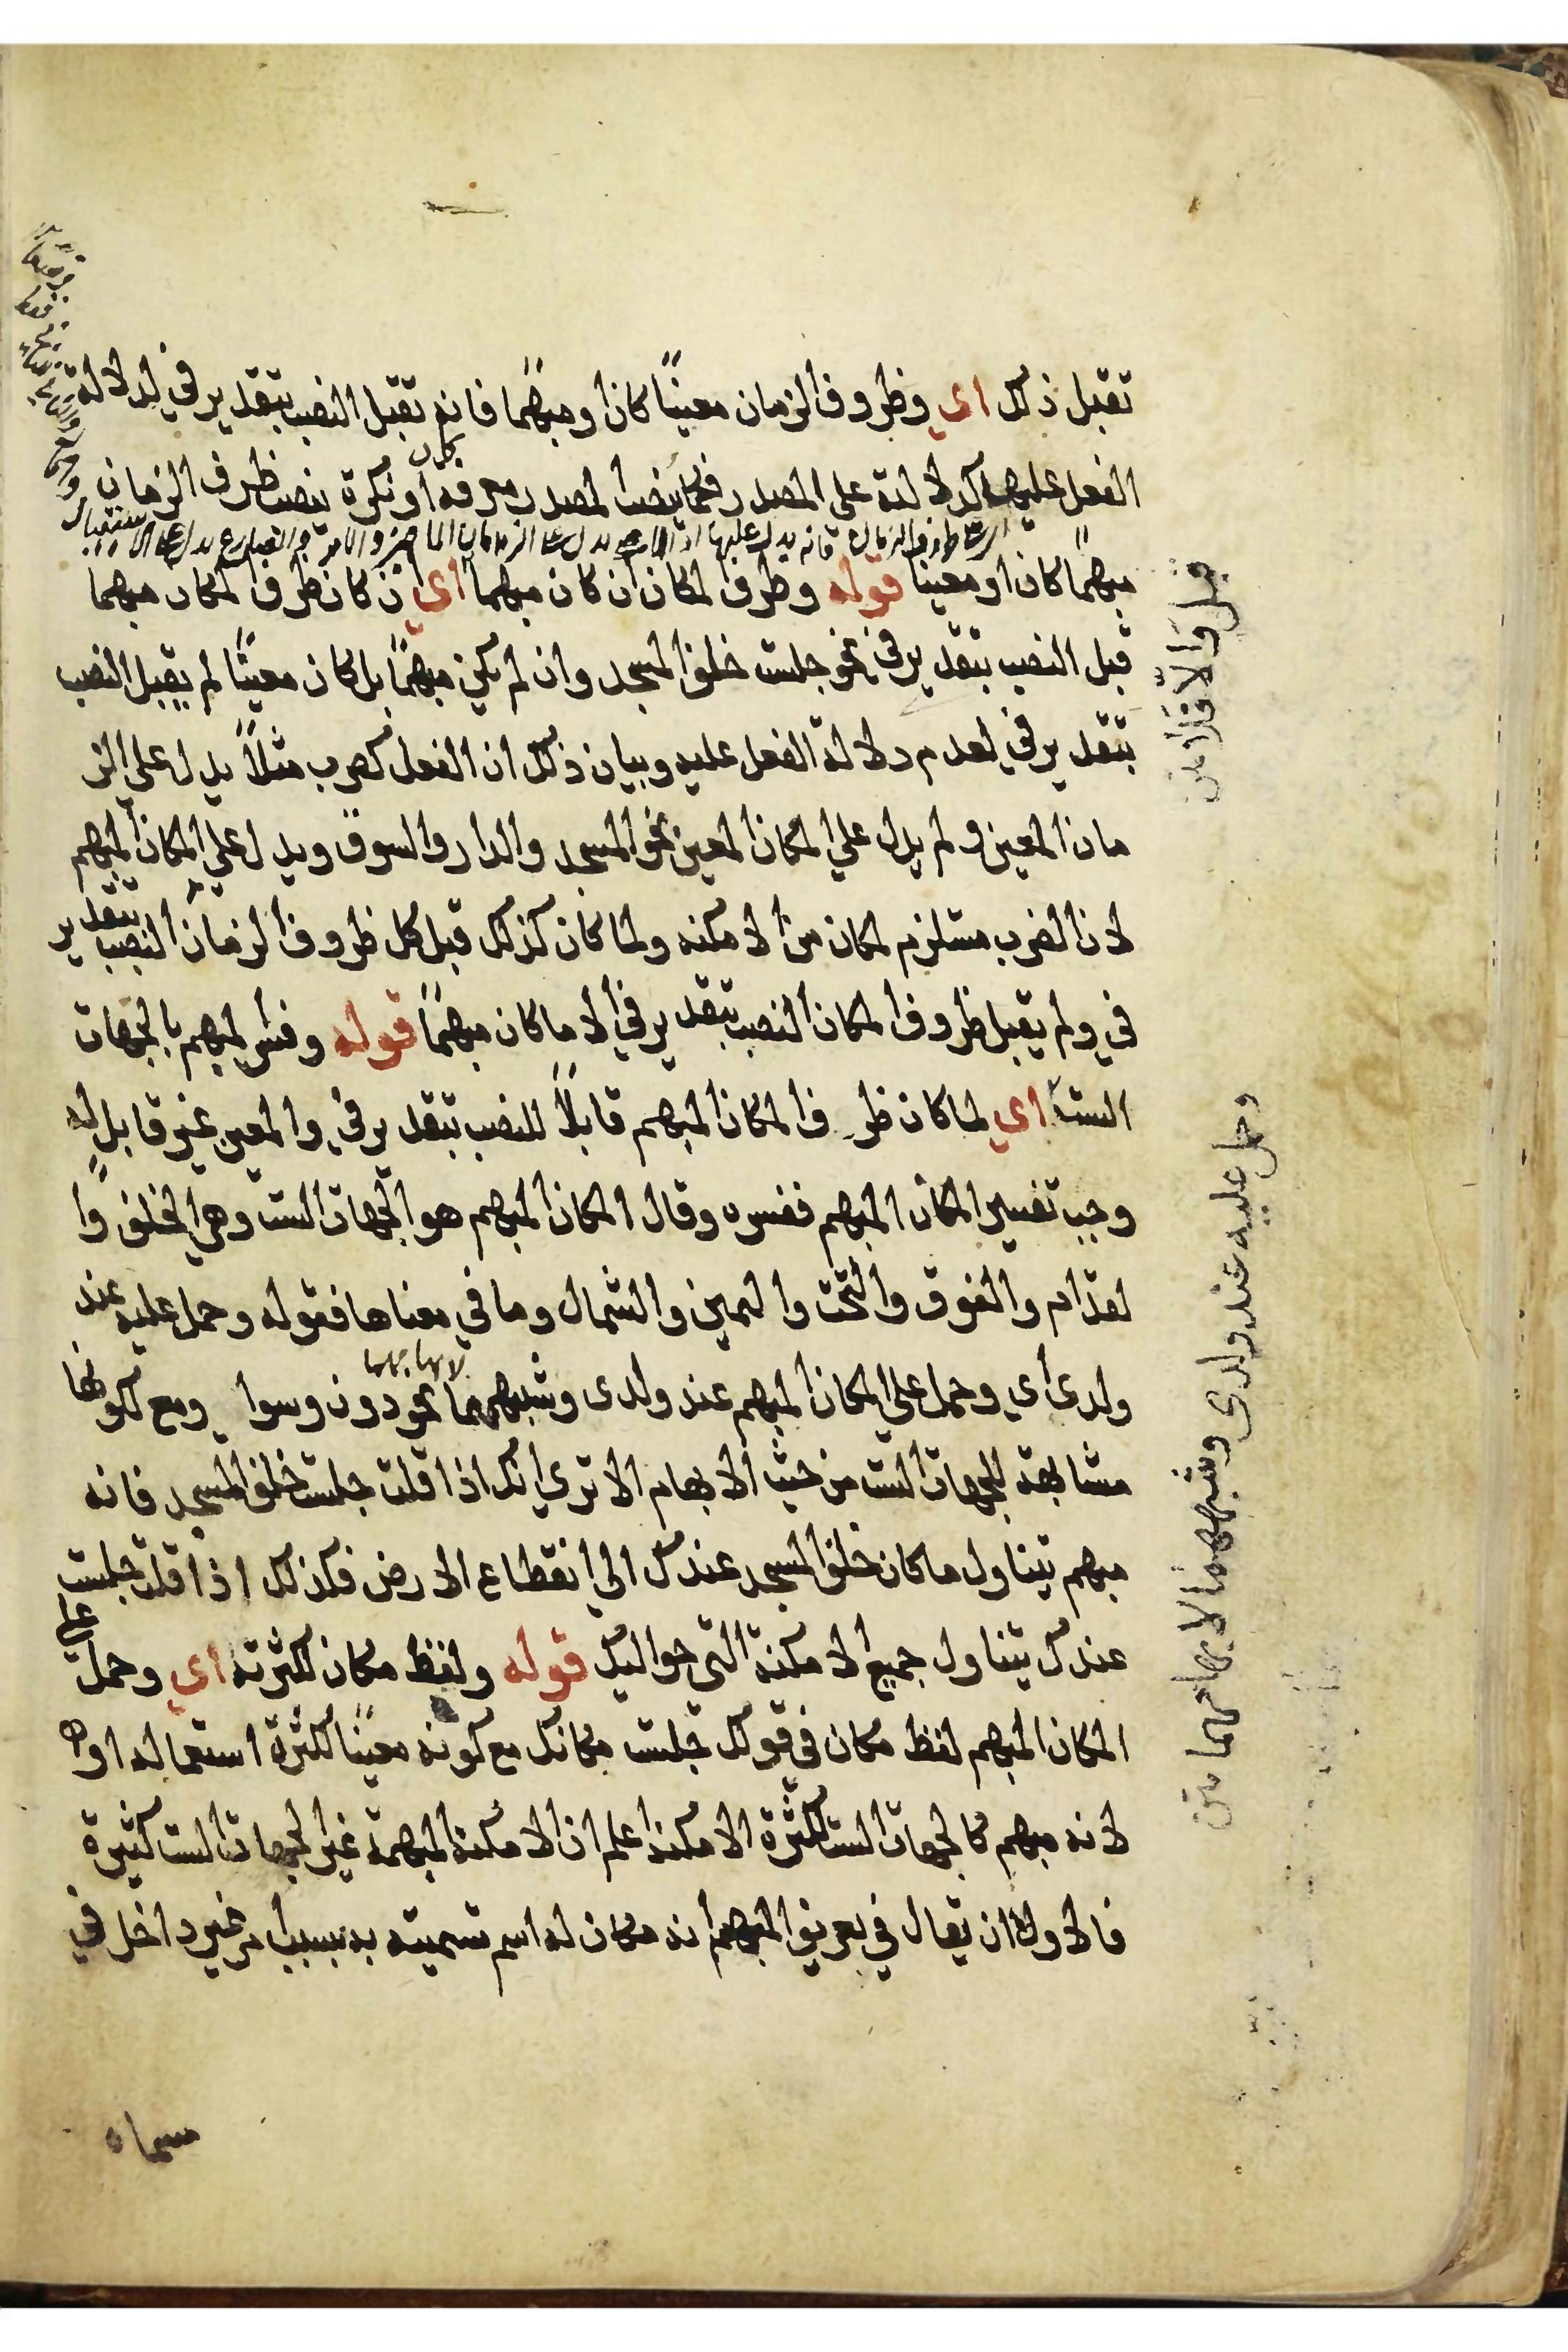 تقبل ذلك اي وظروف الزمان معينًا كان او مبهمًا فانه تقبل النصب بتقدير في لدلالة
الفعل عليها كدلالته على المصدر فكما ينصب المصدر معرفة كان او نكرة ينصب ظرف الزمان
مبهمًا كان او معينا قوله وظرف المكان ان كان مبهما اي ان كان ظرف المكان مبهما
قبل النصب بتقدير في نحو جلست خلف المسجد وان لم يكن مبهمًا بل كان معينًا لم يقبل النصب
بتقدير في لعدم دلالة الفعل عليه وبيان ذلك ان الفعل كضرب مثلاً يدل على الز
مان المعين ولم يدل علي المكان المعين نحو المسجد والدار والسوق ويدل علي المكان المبهم
لان الضرب مستلزم لمكان من الامكنه ولما كان كذلك قبل كل ظروف الزمان النصب بتقدير
في ولم يقبل ظروف المكان النصب بتقدير في الا ما كان مبهمًا قوله وفسر المبهم بالجهات
الست اي لما كان ظرف المكان المبهم قابلاً للنصب بتقدير في والمعين غير قابل له
وجب تفسير المكان المبهم ففسره وقال المكان المبهم هو الجهات الست وهي الخلف وا
لقدام والفوق والتحت واليمين والشمال وما في معناها فقوله وحمل عليه عند
ولدى اي وحمل علي المكان المبهم عند ولدى وشبههما نحو دون وسوا ومع لكونها
مشابهة للجهات الست من حيث الابهام الا تري انك اذا قلت جلست خلف المسجد فانه
مبهم يتناول ما كان خلف المسجد عندك الي انقطاع الارض فكذلك اذا قلت جلست
عندك يتناول جميع الامكنة التي حواليك قوله ولفظ مكان لكثرته اي وحمل علي
المكان المبهم لفظ مكان في قولك جلست مكانك مع كونه معينًا لكثرة استعماله او
لانه مبهم كالجهات الست لكثرة الامكنة اعلم ان الامكنة المبهمة غير الجهات الست كثيرة
فالاولى ان يقال في تعريف المبهم انه مكان له اسم تسميته به بسبب امر غير داخل في
مسماه
قبل والا فلا متن
وحمل عليه عند ولدى وشبههما لابهامهما متن
لابهامهما